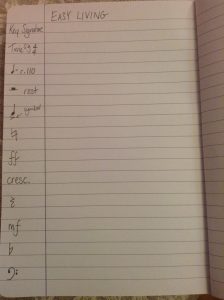 EASY LIVING
Key Signature
Time Sig
♩= c.110
rest
symbol
♮
ff
cresc.
𝄽
mf
♭
𝄢